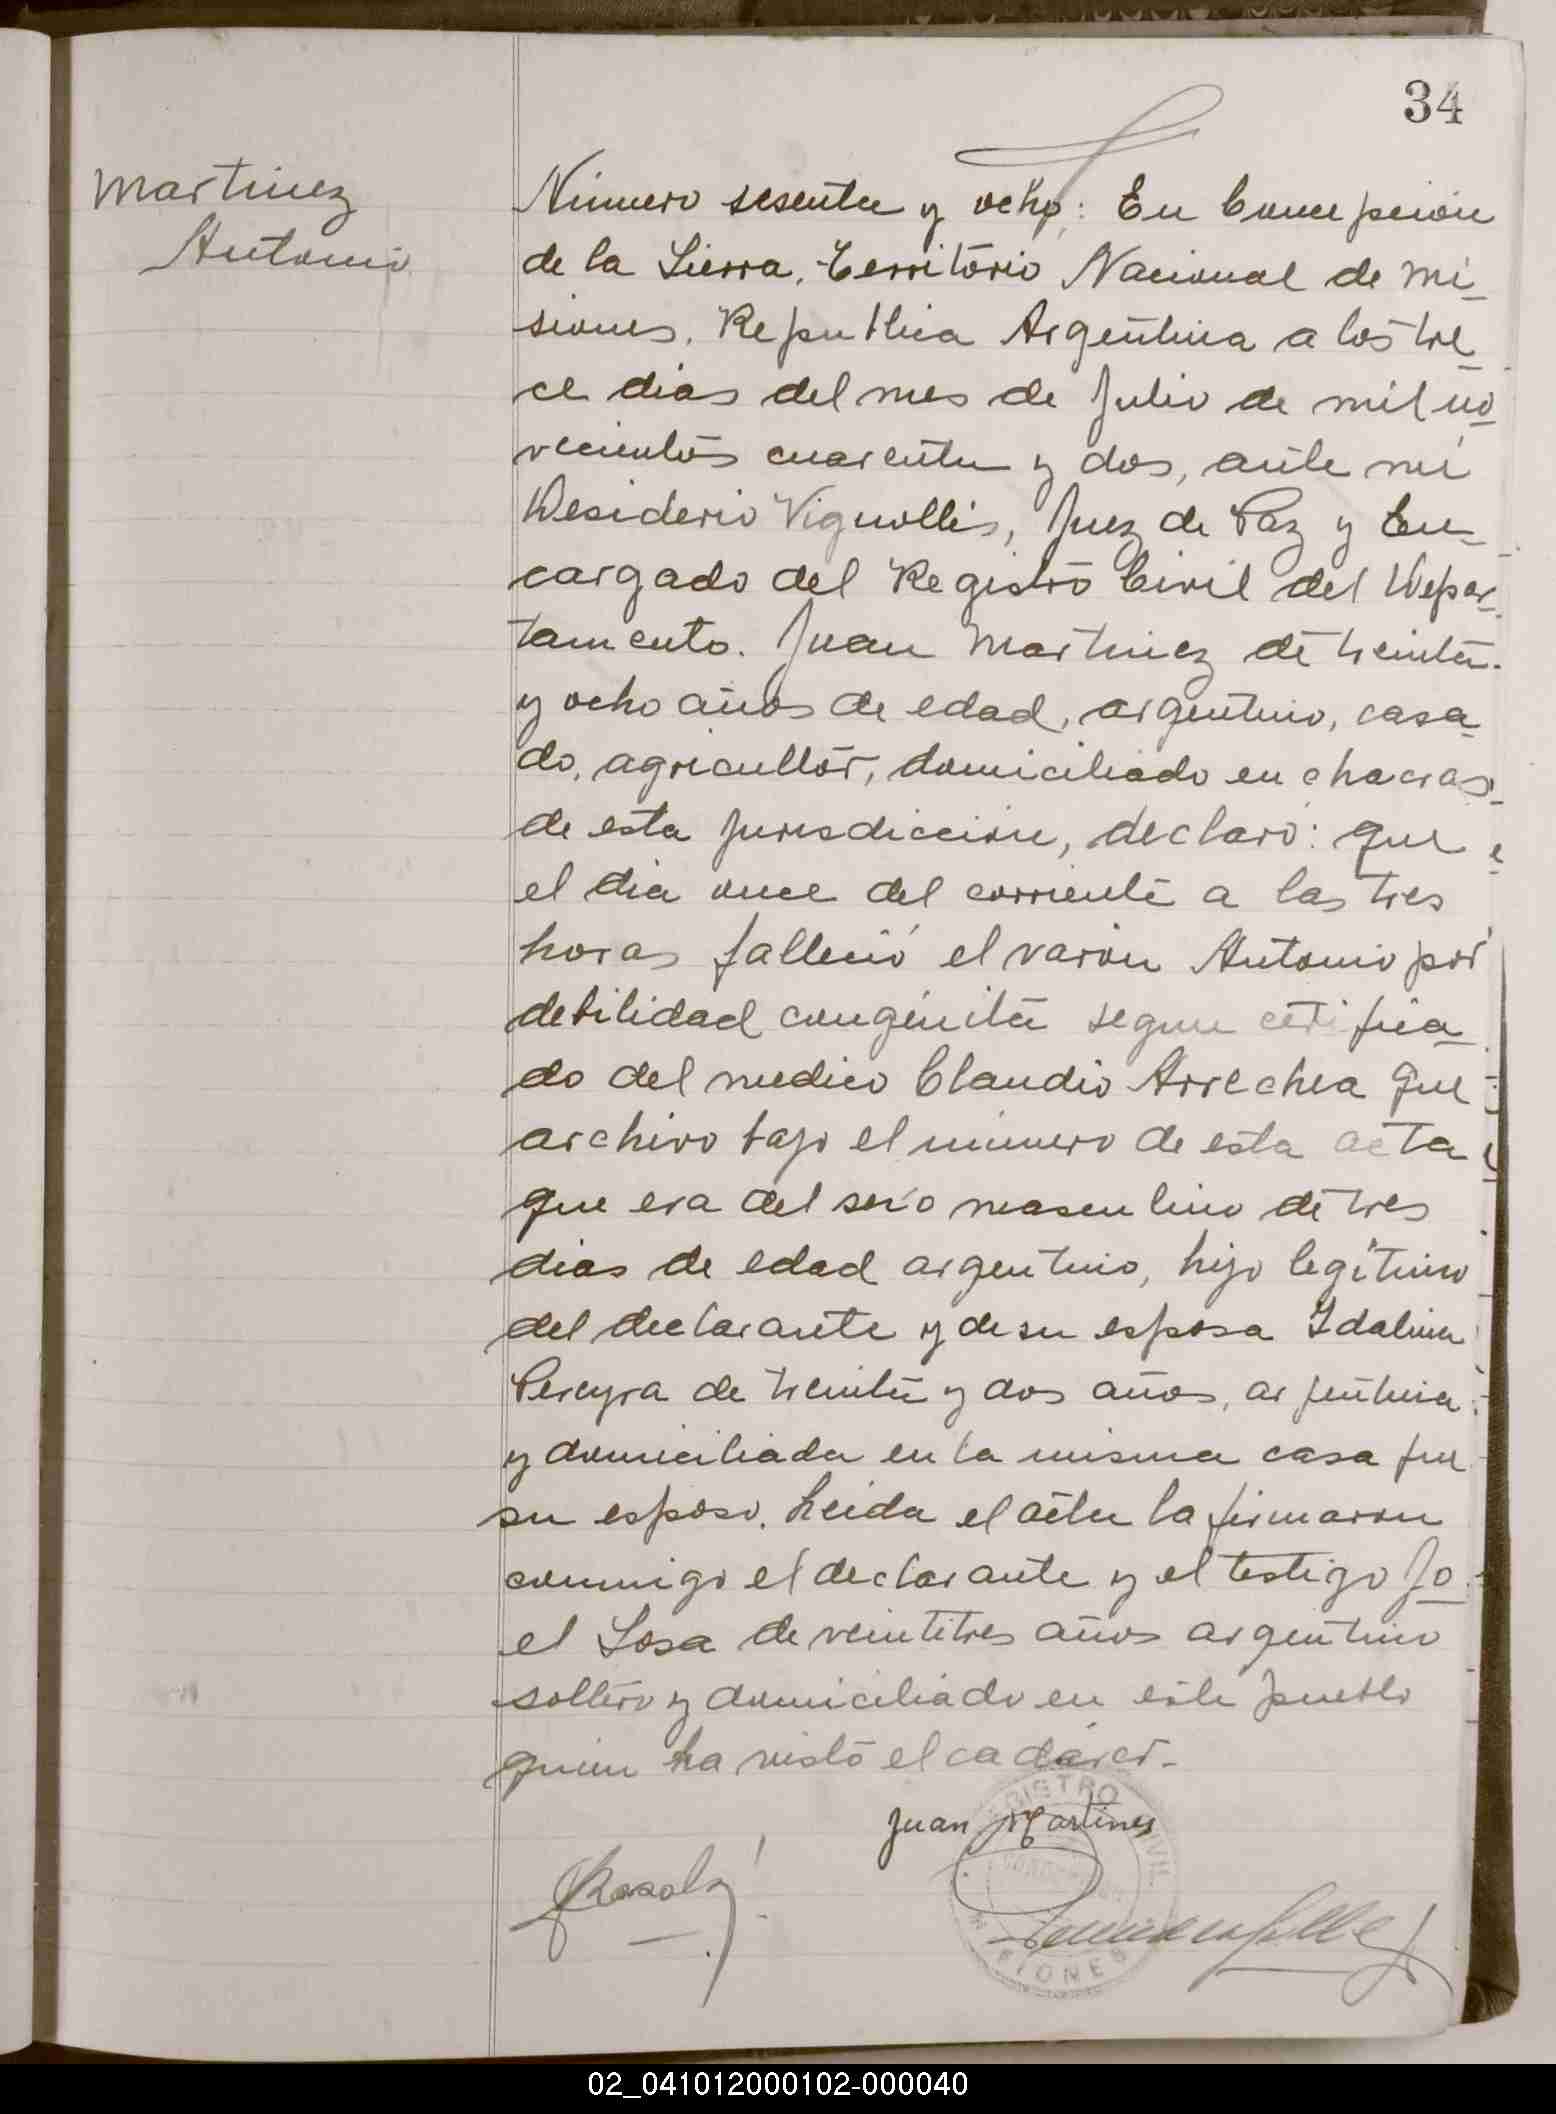 34
Martinez
Antonio
Número sesenta y ocho: En Concepción
de la Sierra, Territorio Nacional de Mi-
siones, Republica Argentina a los tre-
ce dias del mes de Julio de mil no-
vecientos cuarenta y dos, ante mi
Desiderio Vignolles, Juez de Paz y En-
cargado del Registro Civil del Depar-
tamento. Juan Martinez de treinta
y ocho años de edad, argentino, casa-
do, agricultor, domiciliado en chacras
de esta jurisdiccion, declaró: que
el dia once del corriente a las tres
horas falleció el varón Antonio por
debilidad congénita segun certifica-
do del medico Claudio Arrechea que
archivo bajo el número de esta acta
que era del sexo masculino de tres
dias de edad argentino, hijo legítimo
del declarante y de su esposa Idalina
Pereyra de treinta y dos años, argentina
y domiciliada en la misma casa que
su esposo. Leida el acta la firmaron
conmigo el declarante y el testigo Jo-
el Sosa de veintitres años argentino
soltero y domiciliado en este pueblo
quien ha visto el cadáver.-
Juan Martines
REGISTRO CIVIL
MISIONES
02_041012000102-000040